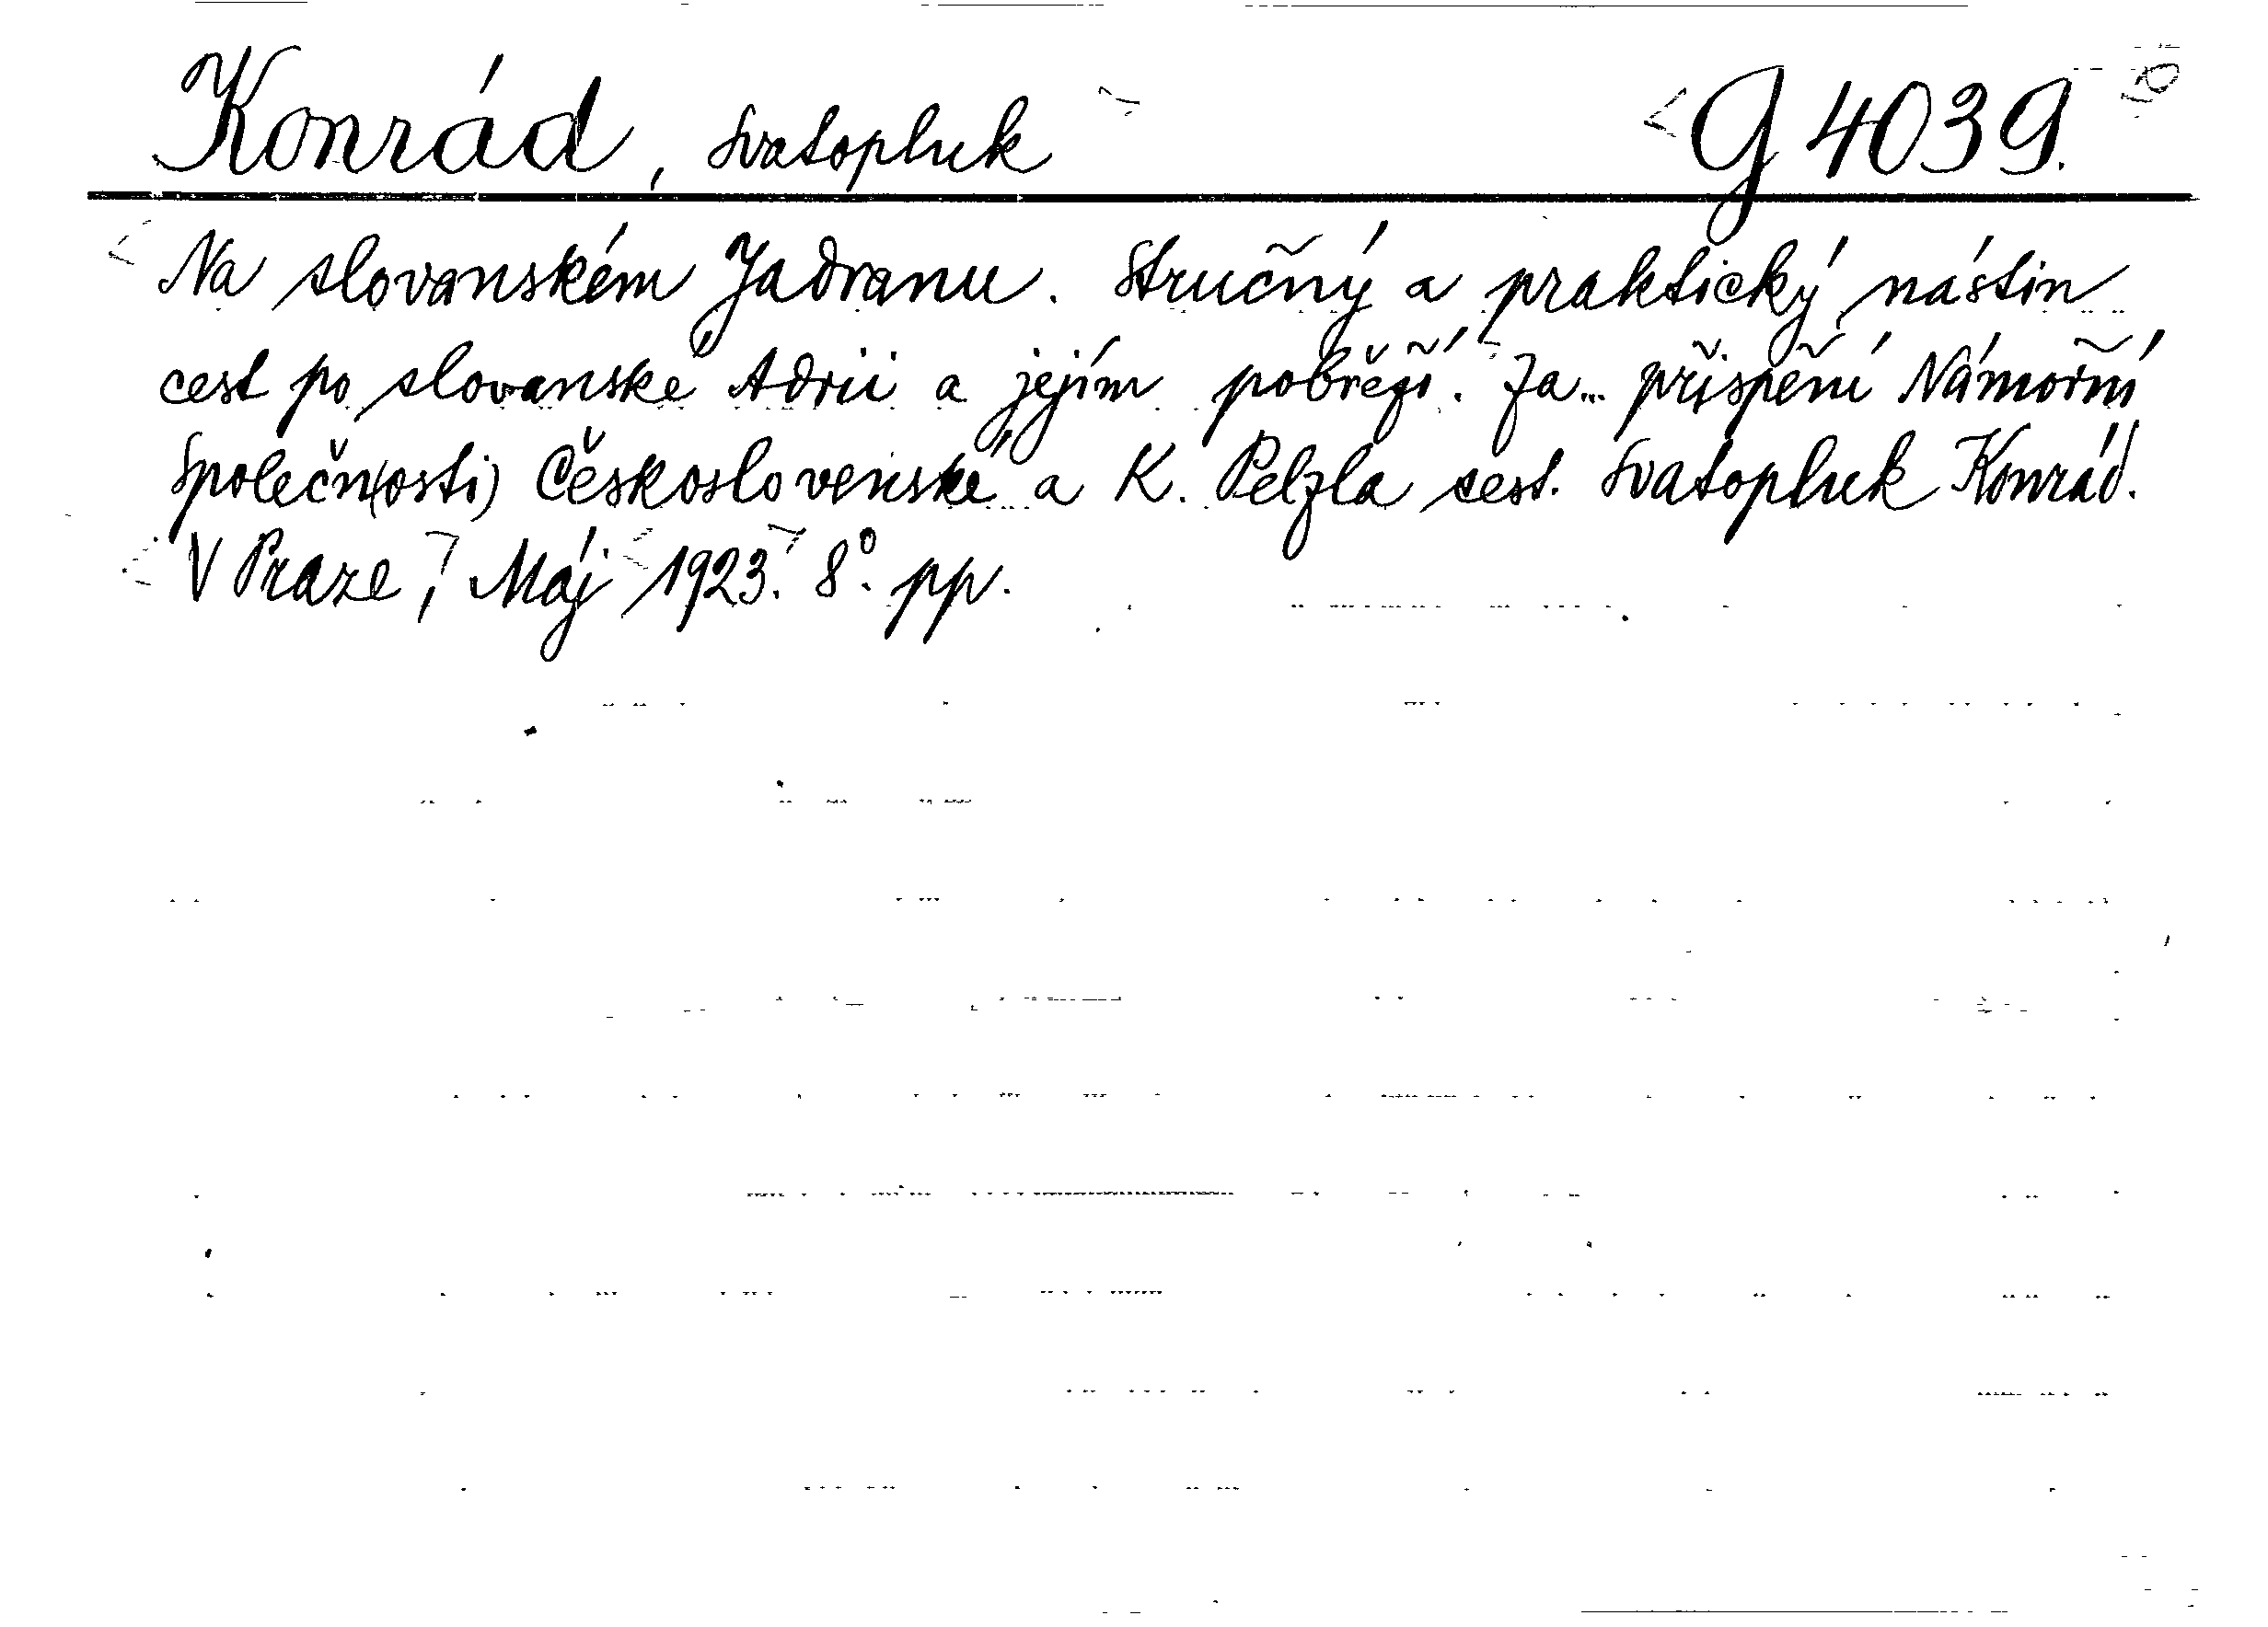 Konrád, Svatopluk G 4039.
Na slovanském Jadranu. Stručný a praktický nástin
cest po slovanské Adrii a jejím pobřeží. Za... přispění Námořní
Společn(osti) Československé a K. Pelzla sest. Svatopluk Konrád.
V Praze, Máj 1923. 8°. pp.